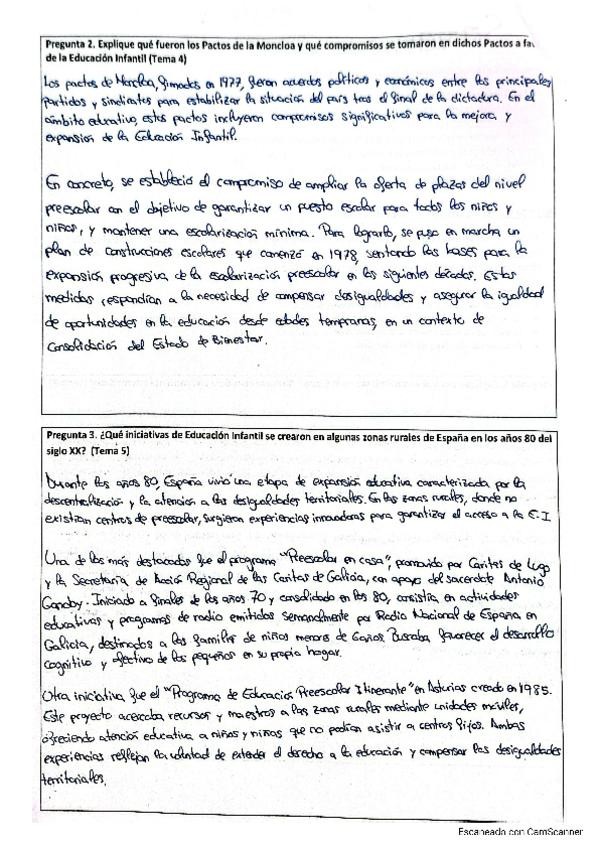 Pregunta 2. Explique qué fueron los Pactos de la Moncloa y qué compromisos se tomaron en dichos Pactos a fa
de la Educación Infantil (Tema 4)
Los pactos de Moncloa, firmados en 1977, fueron acuerdos políticos y económicos entre los principales
partidos y sindicatos para estabilizar la situación del país tras el final de la dictadura. En el
ámbito educativo, estos pactos incluyeron compromisos significativos para la mejora y
expansión de la Educación Infantil.
En concreto, se estableció el compromiso de ampliar la oferta de plazas del nivel
preescolar con el objetivo de garantizar un puesto escolar para todos los niños y
niñas, y mantener una escolarización mínima. Para lograrlo, se puso en marcha un
plan de construcciones escolares que comenzó en 1978, sentando las bases para la
expansión progresiva de la escolarización preescolar en las siguientes décadas. Estas
medidas respondían a la necesidad de compensar desigualdades y asegurar la igualdad
de oportunidades en la educación desde edades tempranas, en un contexto de
Consolidación del Estado de Bienestar.
Pregunta 3. ¿Qué iniciativas de Educación Infantil se crearon en algunas zonas rurales de España en los años 80 del
siglo XX? (Tema 5)
Durante los años 80, España vivió una etapa de expansión educativa caracterizada por la
descentralización y la atención a las desigualdades territoriales. En las zonas rurales, donde no
existían centros de preescolar, surgieron experiencias innovadoras para garantizar el acceso a la E.I
Una de las más destacadas fue el programa "Preescolar en casa", promovido por Caritas de Lugo
y la Secretaría de Acción Regional de las Caritas de Galicia, con apoyo del sacerdote Antonio
Gandoy. Iniciado a finales de los años 70 y consolidado en los 80, consistía en actividades
educativas y programas de radio emitidos semanalmente por Radio Nacional de España en
Galicia, destinados a las familias de niños menores de 6 años. Buscaba favorecer el desarrollo
cognitivo y afectivo de los pequeños en su propio hogar.
Otra iniciativa fue el "Programa de Educación Preescolar Itinerante" en Asturias creado en 1985.
Este proyecto acercaba recursos y maestros a las zonas rurales mediante unidades móviles,
ofreciendo atención educativa a niños y niñas que no podían asistir a centros fijos. Ambas
experiencias reflejan la voluntad de extender el derecho a la educación y compensar las desigualdades
territoriales.
Escaneado con CamScanner